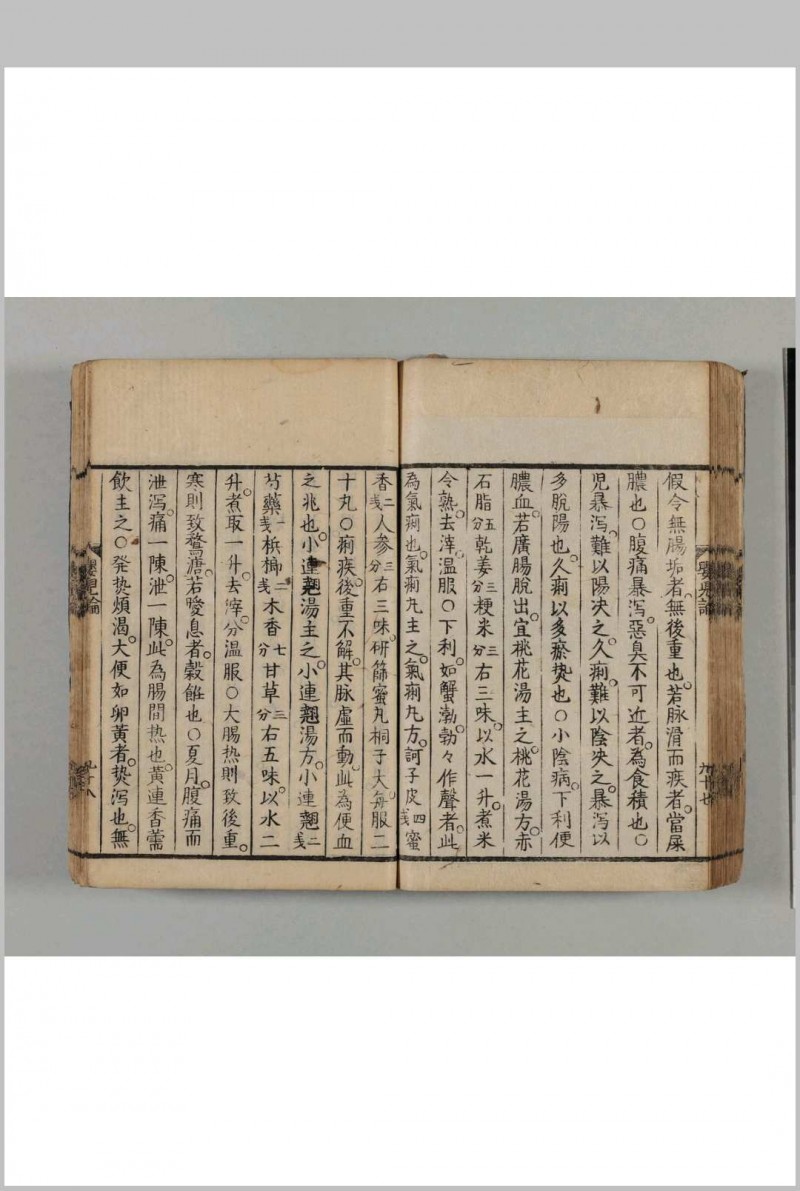 假令無腸垢者。無後重也。若脉滑而疾者。當屎
膿也○腹痛暴泻。惡臭不可近者。為食積也○
児暴泻。難以陽决之。久痢。難以陰决之。暴泻以
多脫陽也。久痢以多瘀𤍠也○小陰病。下利便
膿血。若廣腸脫出。宜桃花湯主之。桃花湯方。赤
石脂五分乾姜三分粳米三分右三味。以水一升。煮米
令熟。去滓。温服○下利。如蟹渤。勃々作聲者。此
為氣痢也。氣痢丸主之。氣痢丸方。訶子皮四戔蜜
香二戔人参三分右三味。研篩。蜜丸桐子大。每服二
十丸○痢疾後。重不解。其脉虛而動。此為便血
之兆也。小連翹湯主之。小連翹湯方。小連翹二戔
芍藥一戔梹榔二戔木香七分甘草三分右五味。以水二
升。煮取一升。去滓。分温服○大腸热則致後重。
寒則致鶩溏。若噯息者。穀飪也○夏月。腹痛而
泄泻。痛一陳。泄一陳。此為腸間热也。黃連香薷
飲主之○発𤍠煩渴。大便如卵黃者。𤍠泻也。無
嬰児論
九十七
嬰児論
九十八